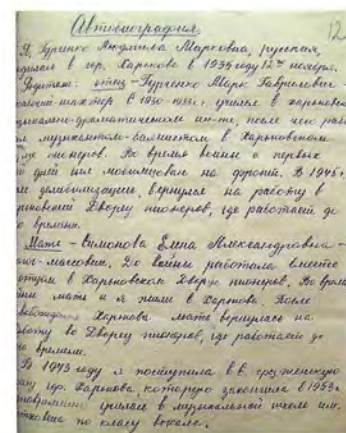 Автобиография
12
Я, Гурченко Людмила Марковна, русская,
родилась в гор. Харькове в 1935 году 12го ноября.
Родители: отец – Гурченко Марк Гаврилович –
шахтер в 1930 – учился в харьковск
драматическом ин-те, после чего раб
музыкантом-баянистом в Харьковском
пионеров. Во время войны с первых
дней был мобилизован на фронт. В 1945 г.
демобилизации, вернулся на работу в
Дворец пионеров, где работает до
времени.
Мать – Симонова Елена Александровна –
массовик. До войны работала вместе
с отцом в Харьковском Дворце пионеров. Во врем
мать и я жили в Харькове. После
Харькова мать вернулась на
работу во Дворец пионеров, где работает до
времени.
В 1943 году я поступила в 6. среднюю
гор. Харькова которую закончила в 1953 г.
училась в музыкальной школе им.
по классу вокала.